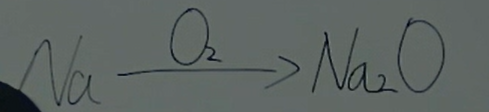 Na —O₂→ Na₂O